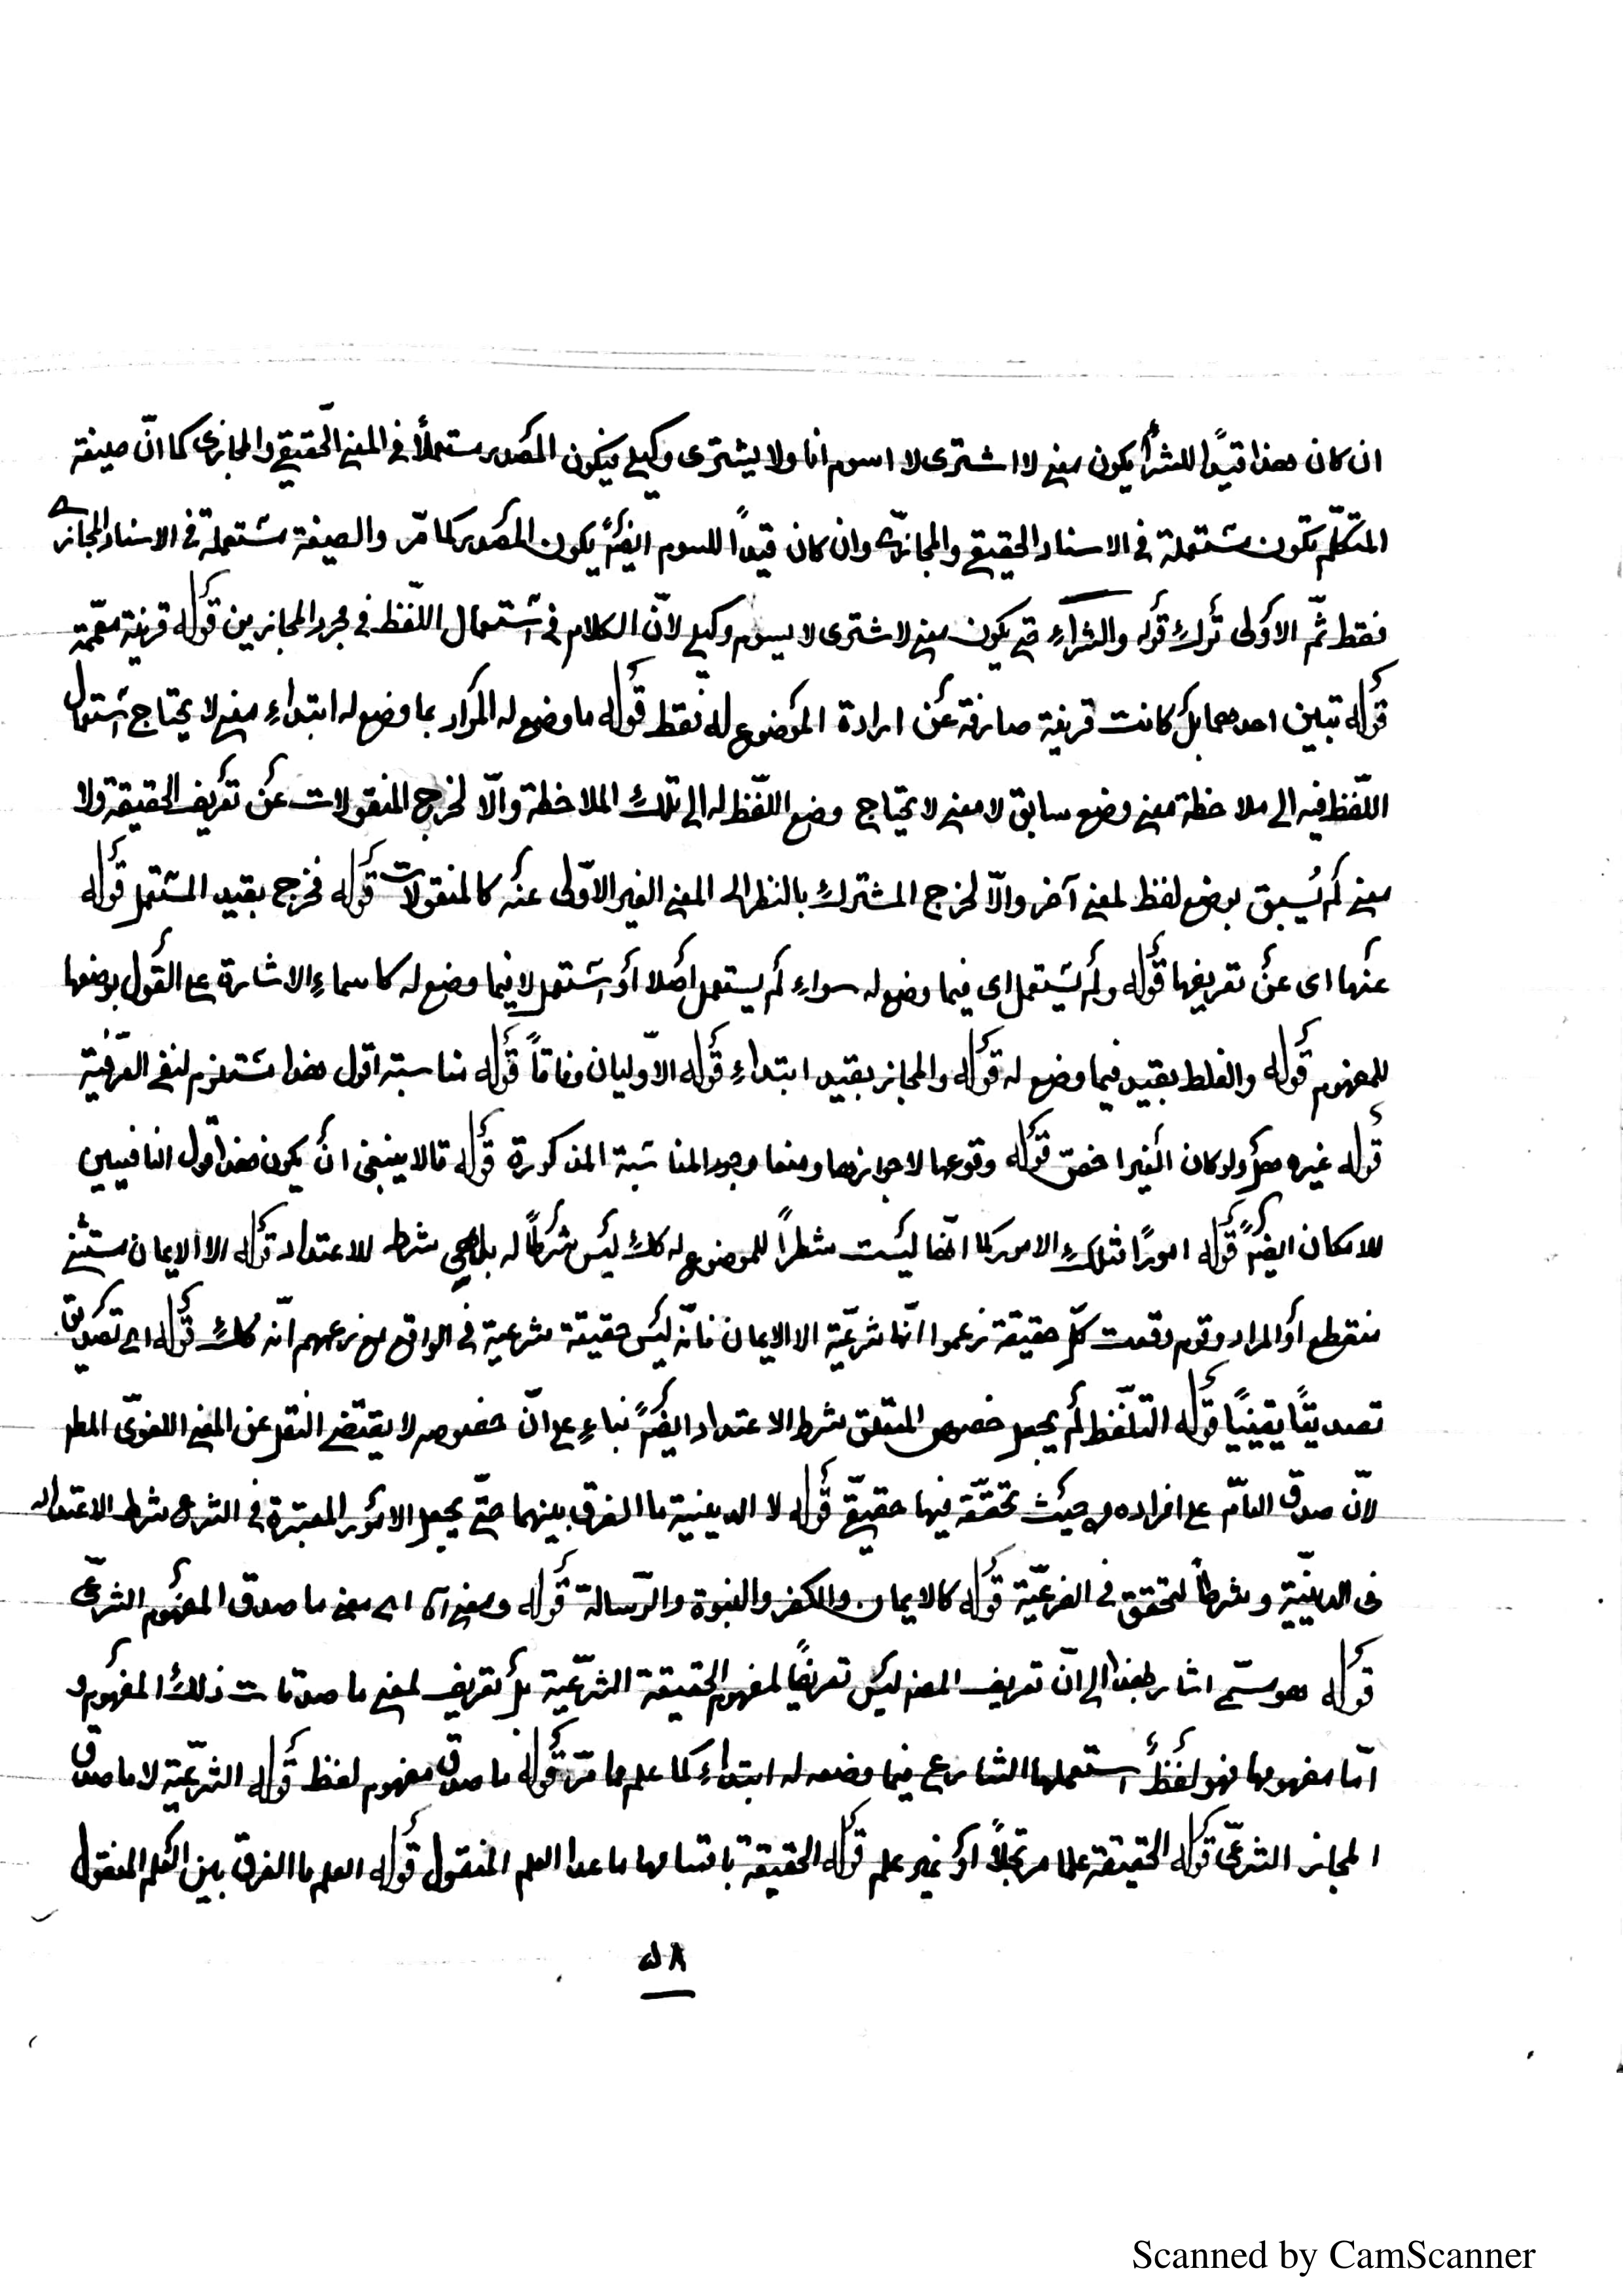 ان كان هذا قيدًا للشرأ يكون معنى لا اشترى لا اسوم انا ولا يشترى وكيلى فيكون المصدر مستعملًا في المعنى الحقيقي والمجازى كما انّ صيغة
المتكلّم تكون مستعملة في الاسناد الحقيقي والمجازىّ وان كان قيدًا للسوم ايضًا يكون المصدر كما مّر والصيغة مستعملة في الاسناد المجازى
فقط ثمّ الاولى ترك قوله والشراءِ حتى يكون معنى لا اشترى لا يسوم وكيلى لانّ الكلام في استعمال اللفظ في مجرد المجازين قوله قرينة معمّمة
قوله تبين احدهما بل كانت قرينة صارفة عن ارادة الموضوع له فقط قوله ما وضع له المراد بما وضع له ابتداءِ معنى لا يحتاج استعمال
اللّفظ فيه الى ملاحظة معنى وضع سابق لا معنى لا يحتاج وضع اللّفظ له الى تلك الملاحظة والّا لخرج المنقولات عن تعريف الحقيقة ولا
معنى لم يُسبق بوضع لفظ لمعنى آخر والّا لخرج المشترك بالنظر الى المعنى الغير الاوّلى عنه كالمنقولات قوله فخرج بقيد المستعمل قوله
عنها اى عن تعريفها قوله ولم يستعمل اى فيما وضع له سواءِ لم يستعمل اصلا او استعمل لا فيما وضع له كاسماءِ الاشارة على القول بوضعها
للمفهوم قوله والغلط بقيد فيما وضع له قوله والمجاز بقيد ابتداءِ قوله الاوّليان وفاقاً قوله مناسبته اقول هذا مستلزم لنفى العرفية
قوله غيره معلّ ولو كان الغير اخصّ قوله وقوعها لا جوازها ومنها وجود المناسبة المذكورة قوله قالا ينبغى ان يكون هذا قول النافيين
للامكان ايضًا قوله امورًا فتلك الامور كما انّها ليست شطرًا للموضوع له كك ليس شرطًا له بل هى شرط للاعتداد قوله الا الايمان مستثنى
منقطع او المراد وقوم وقعت كلّ حقيقة زعموا انّها شرعيّة الا الايمان فانّه ليس حقيقة شرعية في الواقع مع زعمهم انّه كك قوله اى تصديق
تصديقًا يقينيًا قوله التلّفظ لم يجعل خصوص المتعلق شرط الاعتداد ايضًا بناءِ على انّ خصوصه لا يقتضى النقل عن المعنى اللغوىّ المط
لانّ صدق العامّ على افراده من حيث تحققّه فيها حقيقىّ قوله لا الدينية ما الفرق بينهما حتّى يجعل الامور المعتبرة في الشرع شرط الاعتداد
في الدينيّة وشرطاً لتحقق في الفرعيّة قوله كالايمان والكفر والنبوة والرّسالة قوله ومعنى آه اى معنى ما صدق المفهوم الشرعّى
قوله هو مسمّى اشار بهذا الى انّ تعريف المصنف ليس تعريفًا لمفهوم الحقيقة الشرعّية بل تعريف لمعنى ما صدقات ذلك المفهوم و
امّا مفهومها فهو لفظٌ استعملها الشارع فيما وضعه له ابتداءِ كما علم ما مرّ قوله ما صدق مفهوم لفظ قوله الشرعّية لا ما صدق
المجاز الشرعّى قوله الحقيقة علما مرتجلاً او غير علم قوله الحقيقة باقسامها ما عدا العلم المنقول قوله العلم ما الفرق بين العلم المنقول
٥٨
Scanned by CamScanner